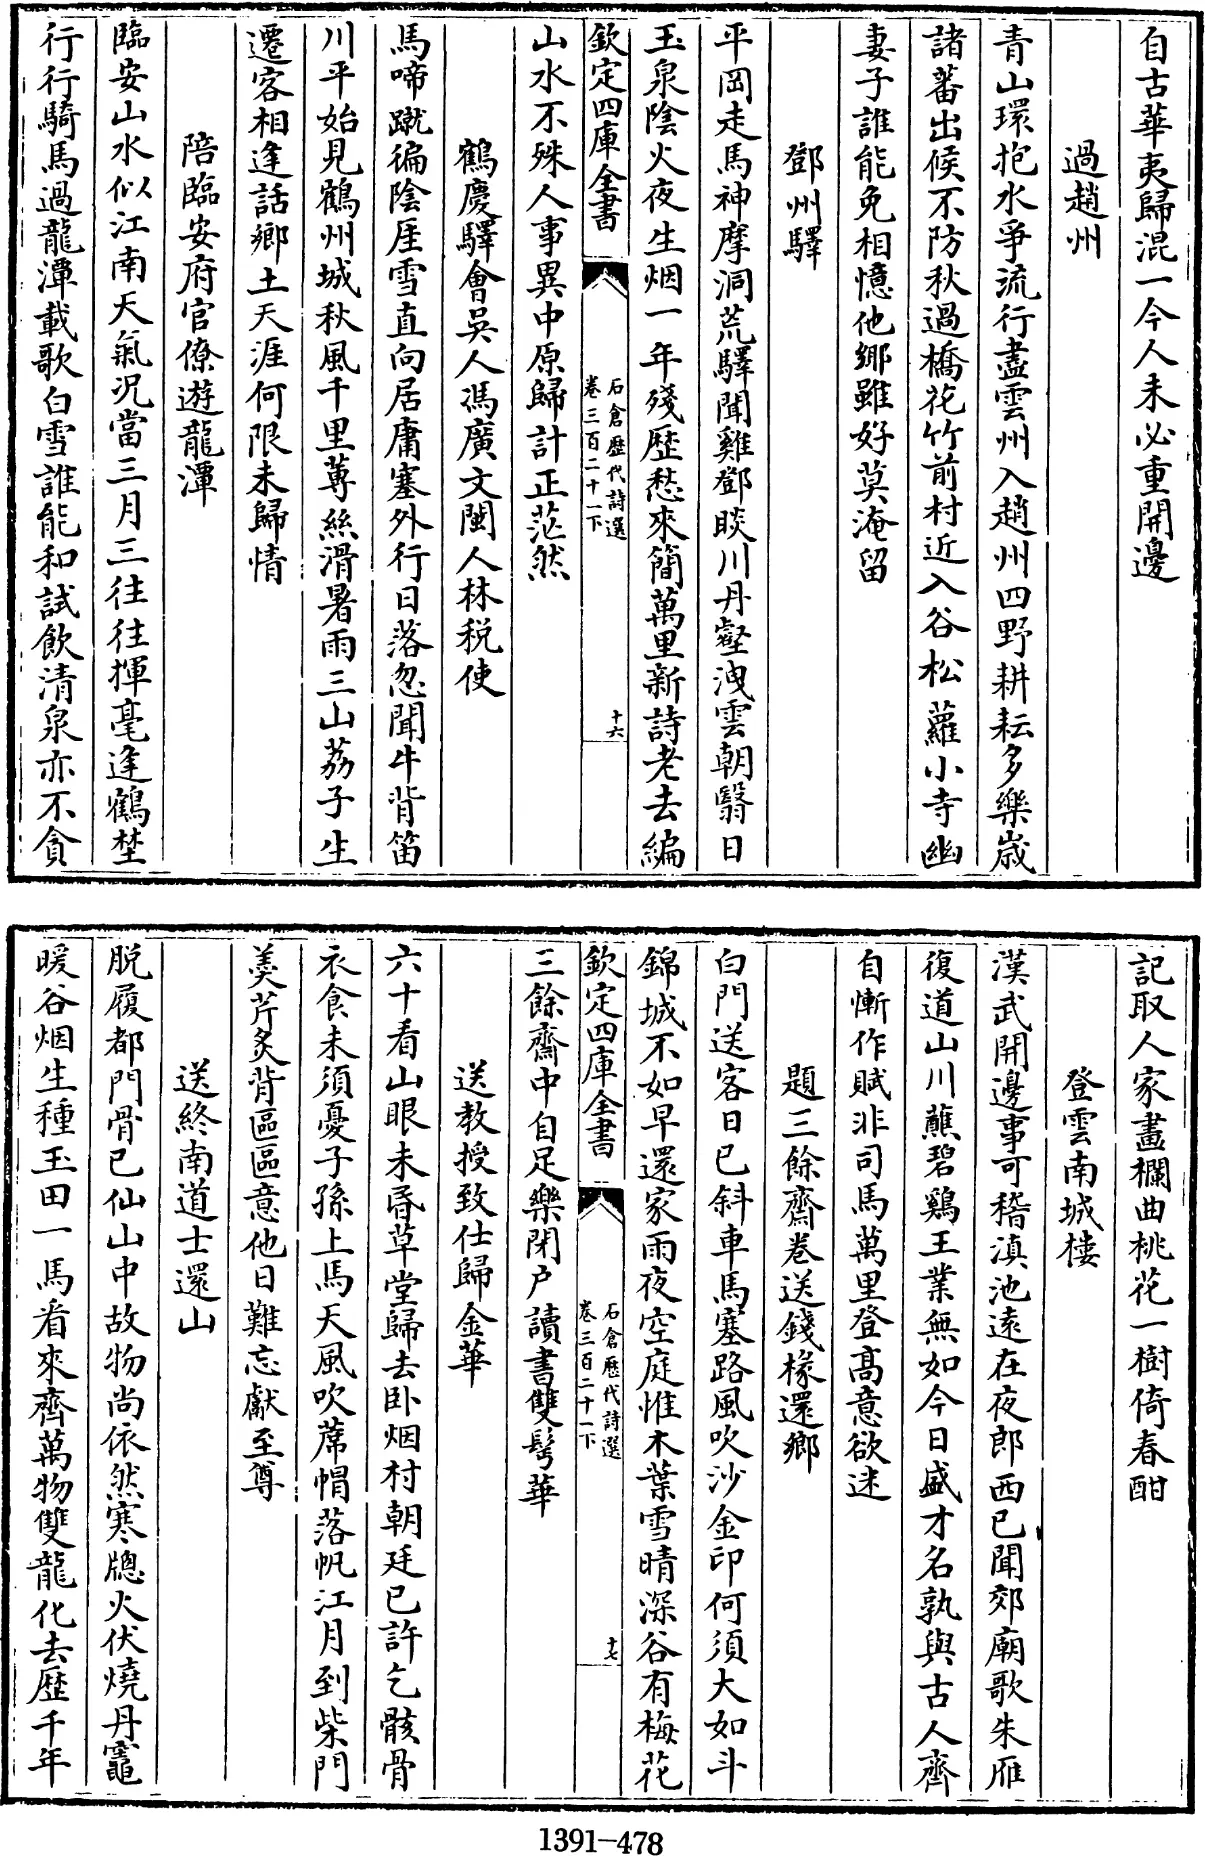 自古華夷歸混一今人未必重開邊
過趙州
青山環抱水爭流行盡雲州入趙州四野耕耘多樂歲
諸蕃出候不防秋過橋花竹前村近入谷松蘿小寺幽
妻子誰能免相憶他鄉雖好莫淹留
鄧州驛
平岡走馬神摩洞荒驛聞雞鄧賧川丹壑洩雲朝翳日
玉泉陰火夜生烟一年殘歷愁來簡萬里新詩老去編
欽定四庫全書
石倉歷代詩選
卷三百二十一下
十六
山水不殊人事異中原歸計正茫然
鶴慶驛會吳人馮廣文閩人林税使
馬啼蹴徧陰厓雪直向居庸塞外行日落忽聞牛背笛
川平始見鶴州城秋風千里蓴絲滑暑雨三山荔子生
遷客相逢話鄉土天涯何限未歸情
陪臨安府官僚遊龍潭
臨安山水似江南天氣况當三月三往往揮毫逢鶴埜
行行騎馬過龍潭載歌白雪誰能和試飲清泉亦不貪
記取人家畫欄曲桃花一樹倚春酣
登雲南城樓
漢武開邊事可稽滇池遠在夜郎西已聞郊廟歌朱雁
復道山川蘸碧鷄王業無如今日盛才名孰與古人齊
自慚作賦非司馬萬里登髙意欲迷
題三餘齋卷送錢椽還鄉
白門送客日已斜車馬塞路風吹沙金印何須大如斗
錦城不如早還家雨夜空庭惟木葉雪晴深谷有梅花
欽定四庫全書
石倉歷代詩選
卷三百二十一下
十七
三餘齋中自足樂閉户讀書雙髩華
送教授致仕歸金華
六十看山眼未昏草堂歸去卧烟村朝廷已許乞骸骨
衣食未須憂子孫上馬天風吹蓆帽落帆江月到柴門
羙芹炙背區區意他日難忘獻至尊
送終南道士還山
脱履都門骨已仙山中故物尚依然寒牕火伏燒丹竈
暖谷烟生種玉田一馬看來齊萬物雙龍化去歷千年
1391-478